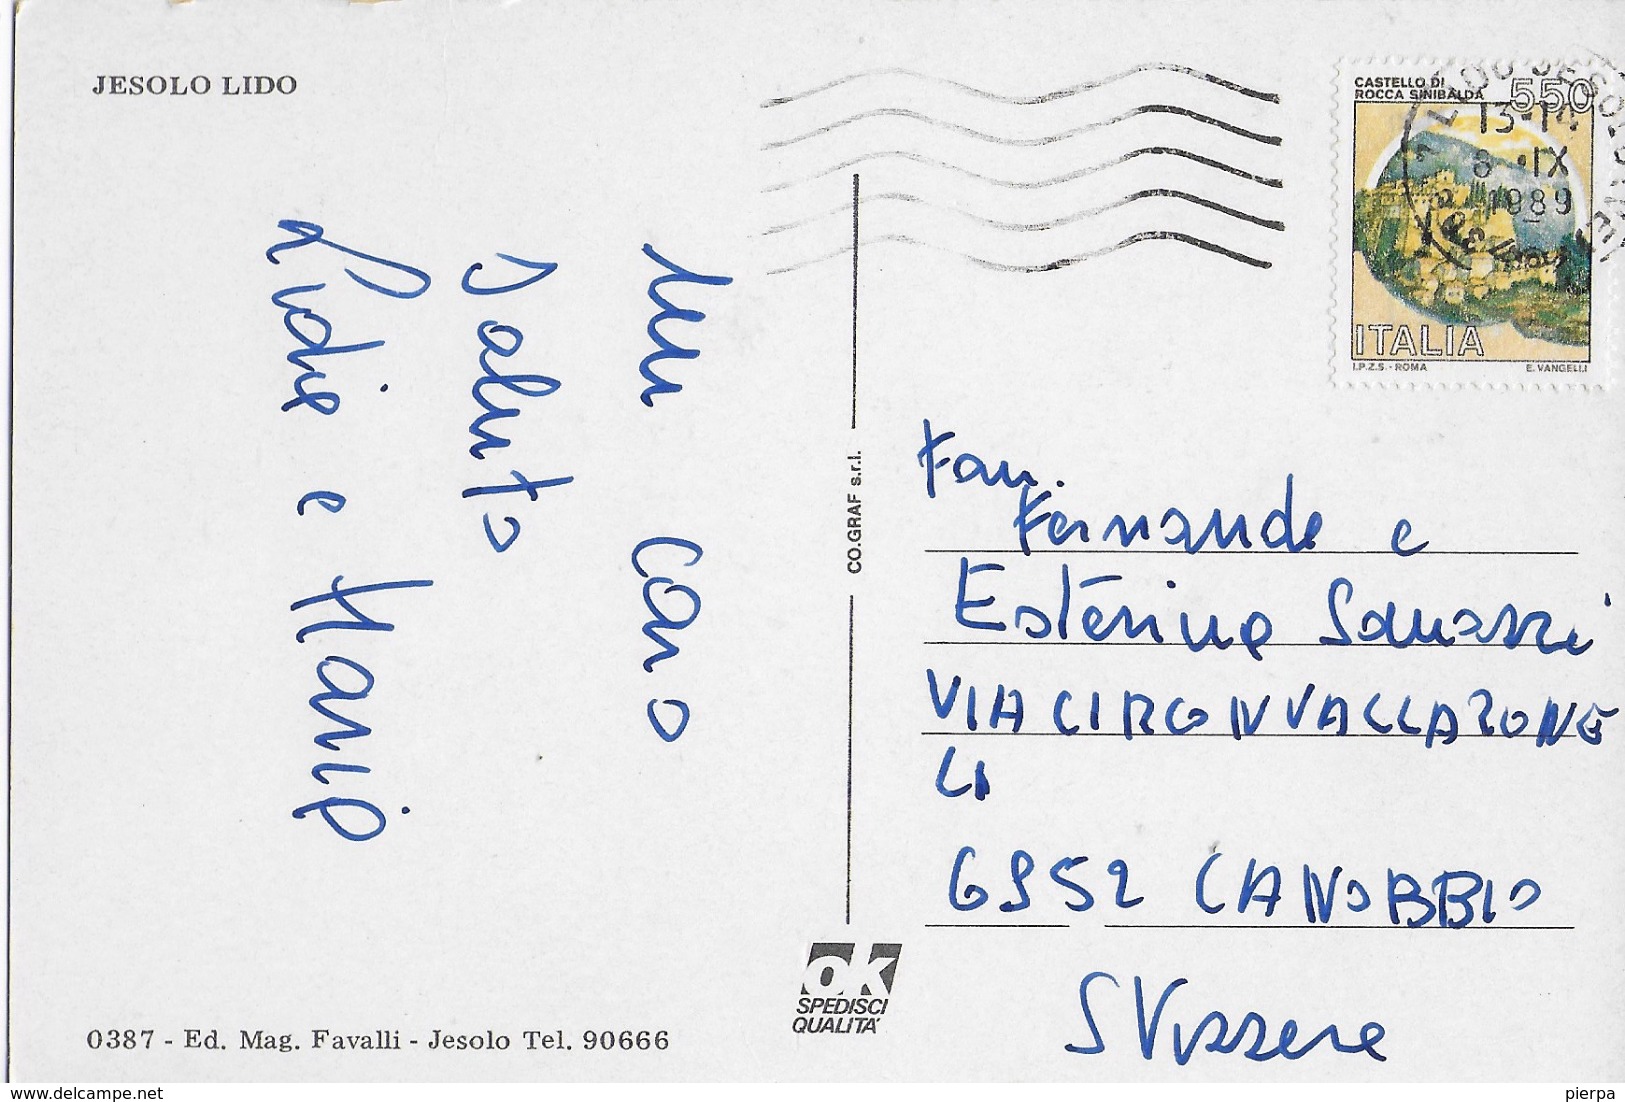 JESOLO LIDO
Un caro
saluto
Lidia e Mario
0387 - Ed. Mag. Favalli - Jesolo Tel. 90666
CO.GRAF s.r.l.
OK
SPEDISCI
QUALITA'
CASTELLO DI
ROCCA SINIBALDA
550
13-14
8 - IX
1989
ITALIA
I.P.Z.S. - ROMA
E. VANGELLI
Fam.
Fernando e
Esterina
VIA CIRCONVALLAZIONE
6952 CANOBBIO
SVizzera
pierpa